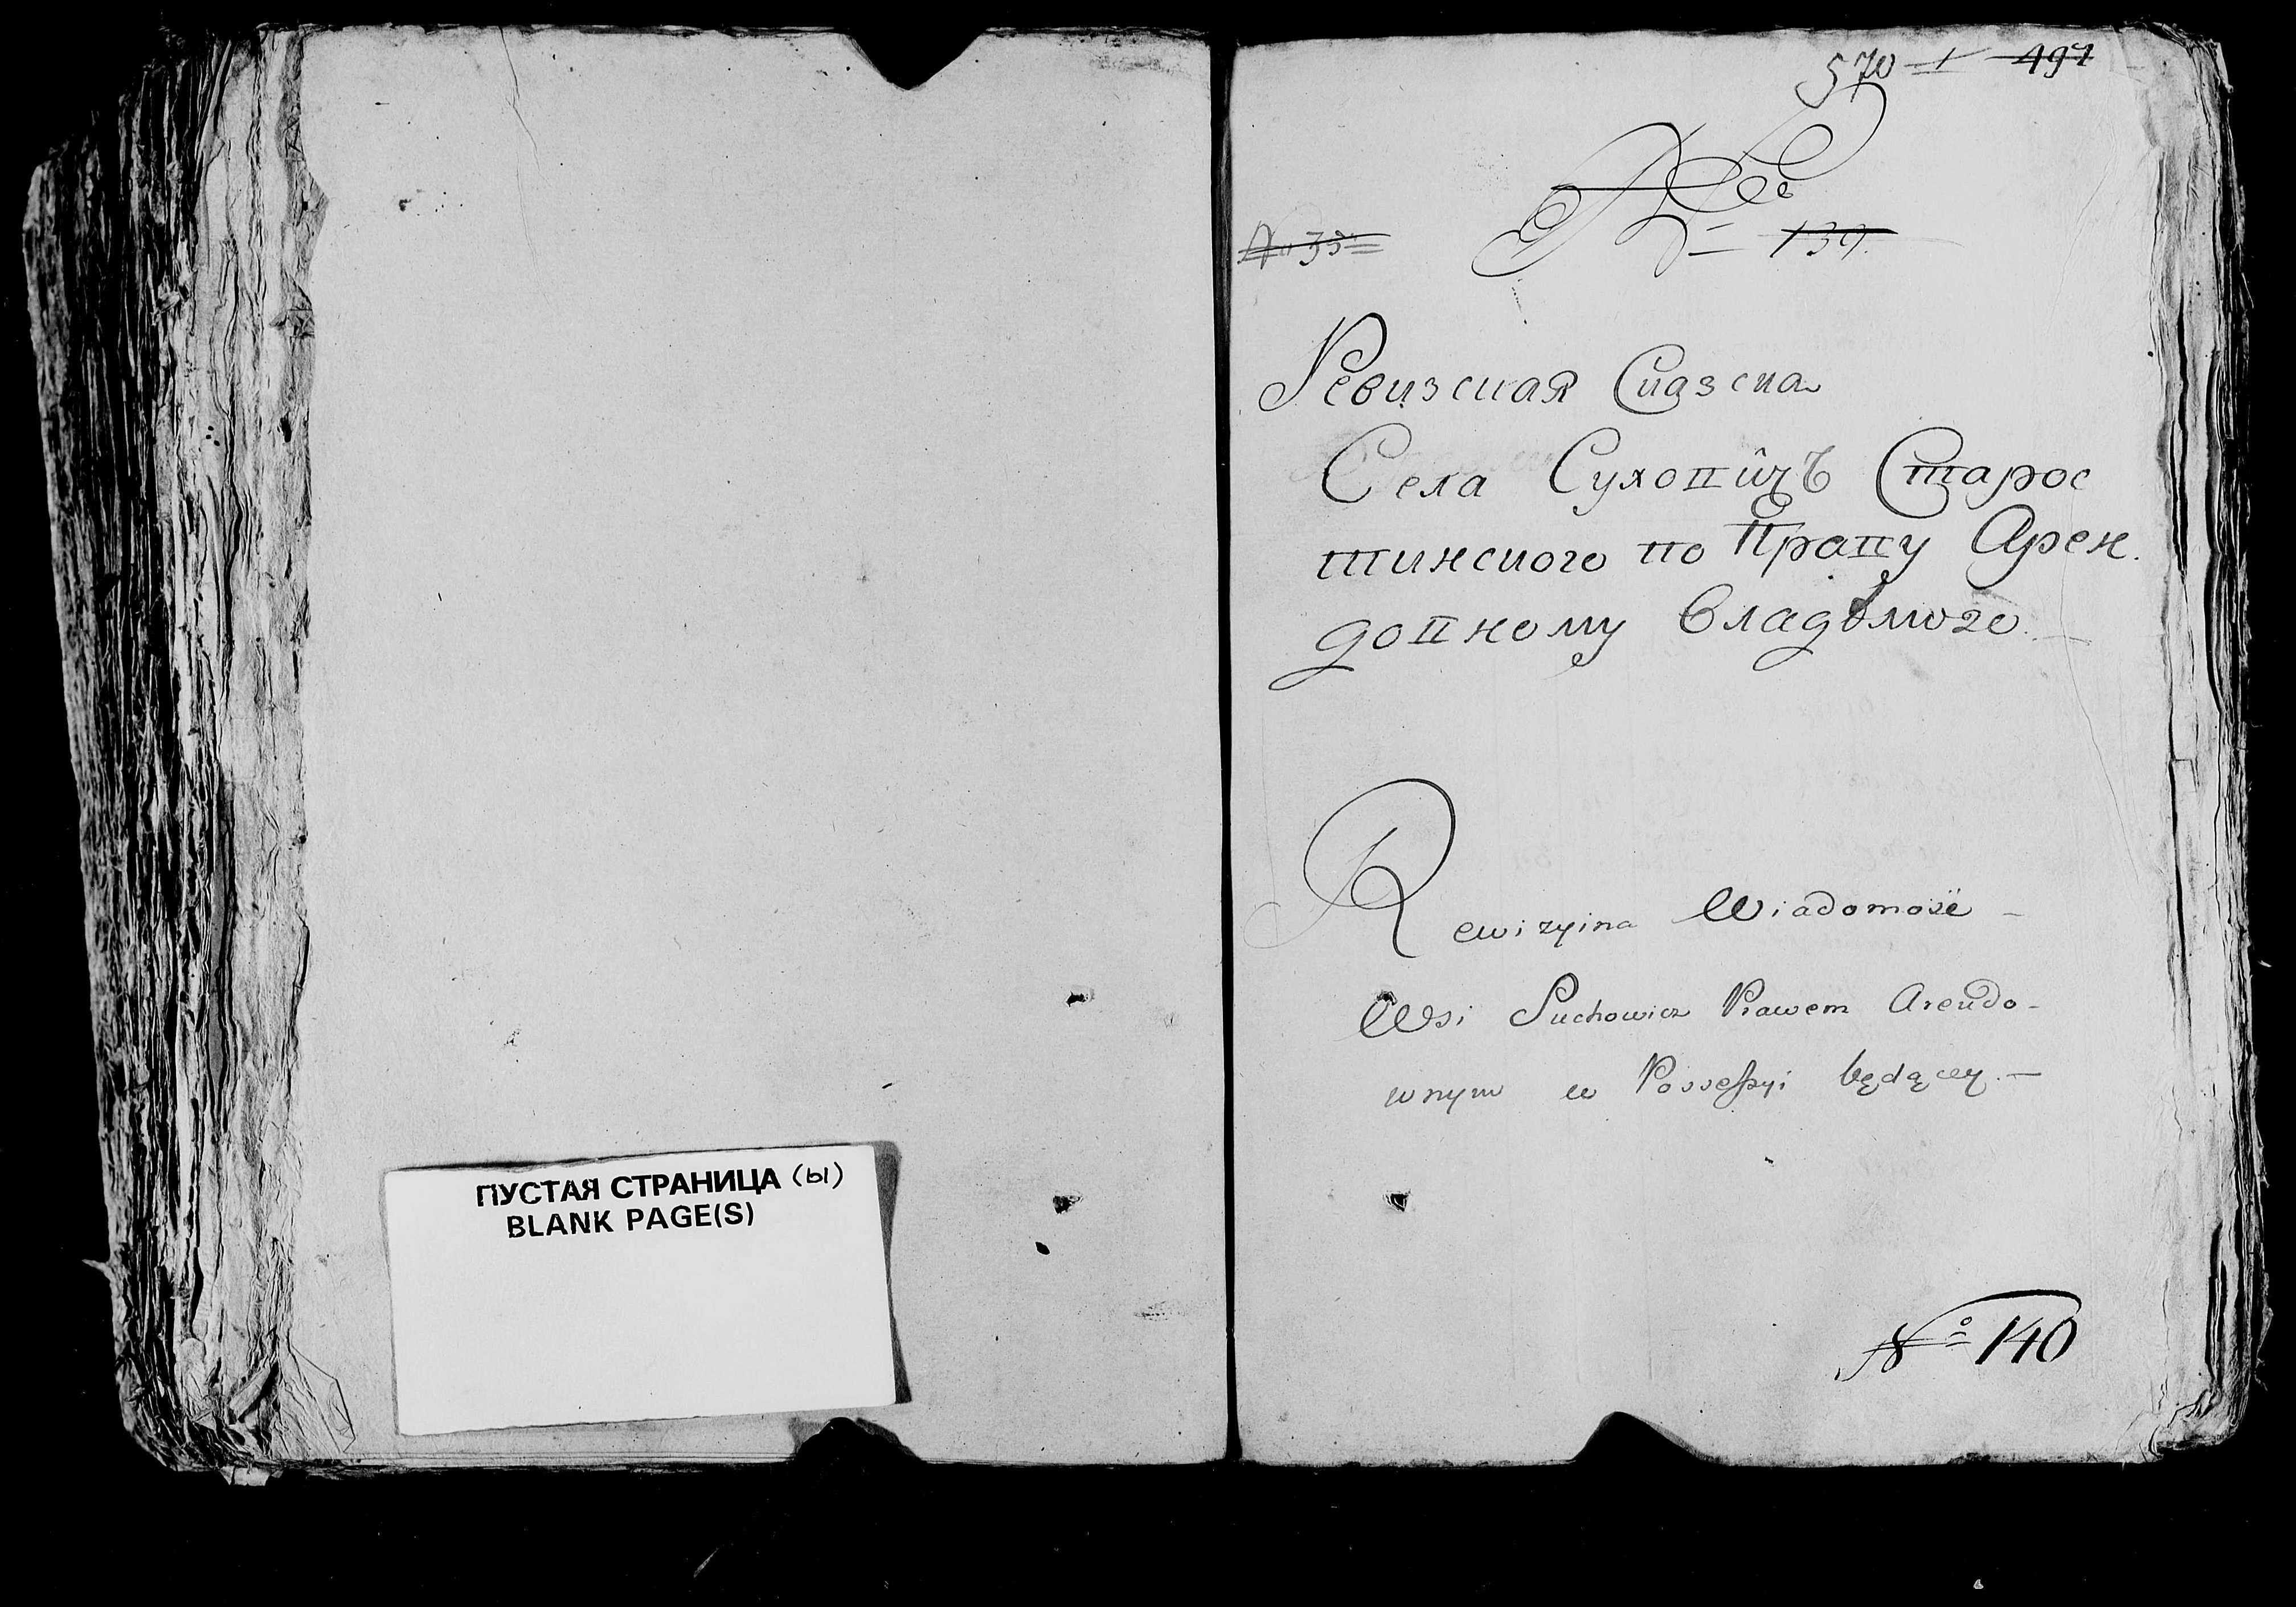 ПУСТАЯ СТРАНИЦА (ы)
BLANK PAGE(S)
570 497
No 35
139.
Ревизская Сказка
Села Суховичъ Старос
тинского по Праву Арен.
довному Владѣмого.
Rewizyina Wiadomość
Wsi Suchowicz Prawem Arendo-
wnym w Possessyi będącey.—
No 140